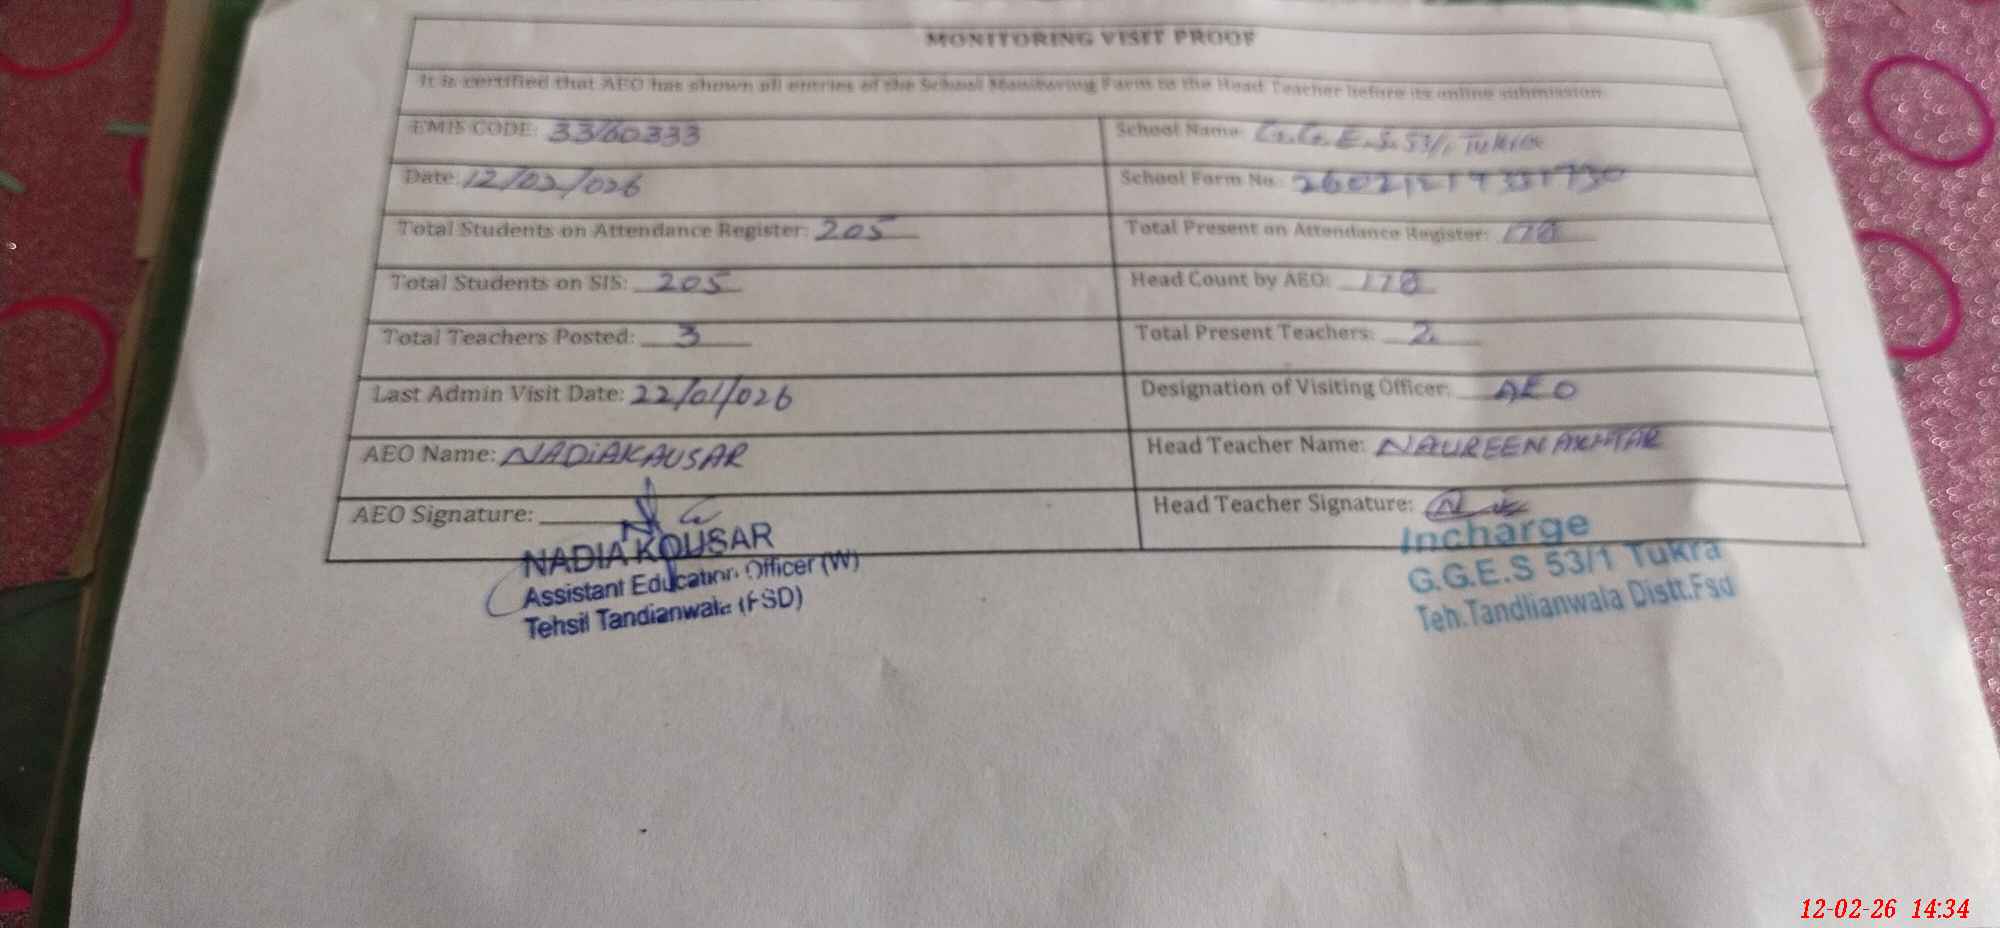 MONITORING VISIT PROOF
It is certified that AEO has shown all entries of the School Monitoring Form to the Head Teacher before its online submission.
EMIS CODE: 33160333
School Name: G.G.E.S. 53/1 Tukra
Date: 12/02/026
School Form No.:
Total Students on Attendance Register: 205
Total Present on Attendance Register: 178
Total Students on SIS: 205
Head Count by AEO: 178
Total Teachers Posted: 3
Total Present Teachers: 2
Last Admin Visit Date: 22/01/026
Designation of Visiting Officer: AEO
AEO Name: NADIA KAUSAR
Head Teacher Name: NAUREEN AKHTAR
AEO Signature:
Head Teacher Signature:
NADIA KOUSAR
Assistant Education Officer (W)
Tehsil Tandianwala (FSD)
Incharge
G.G.E.S 53/1 Tukra
Teh.Tandlianwala Distt.Fsd
12-02-26 14:34